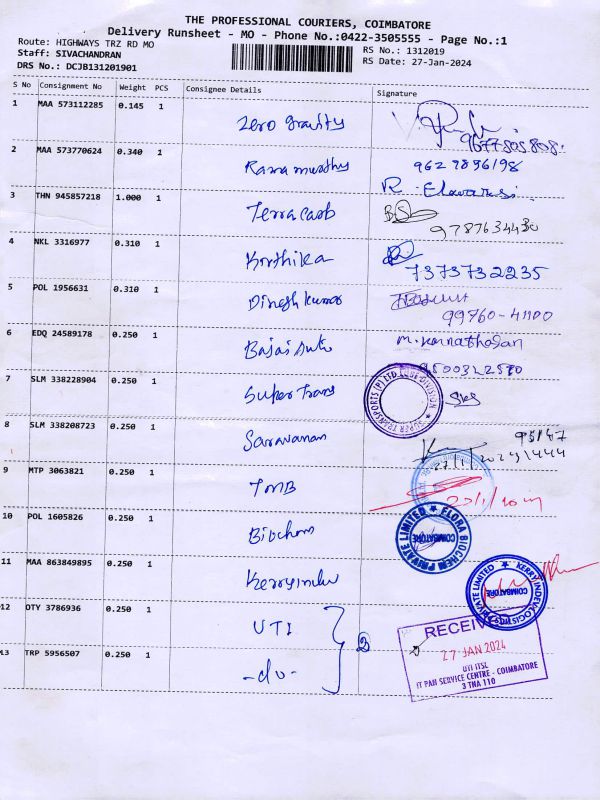 THE PROFESSIONAL COURIERS, COIMBATORE
Delivery Runsheet - MO - Phone No.:0422-3505555 - Page No.:1
Route: HIGHWAYS TRZ RD MO
Staff: SIVACHANDRAN
DRS No.: DCJB131201901
RS No.: 1312019
RS Date: 27-Jan-2024
S No Consignment No Weight PCS Consignee Details Signature
1 MAA 573112285 0.145 1 Zero gravity
9677805808.
2 MAA 573770624 0.340 1 Rama murthy 9629896198
R.
3 THN 945857218 1.000 1 Terra Carb
9787634430
4 NKL 3316977 0.310 1 Karthika
7373732235
5 POL 1956631 0.310 1 Dinesh kumar
99760-41100
6 EDQ 24589178 0.250 1 Bajaj
7 SLM 338228904 0.250 1 Super Trans
SUPER TRANSPORTS (P) LTD
8 SLM 338208723 0.250 1 Saravanan
9 MTP 3063821 0.250 1 TMB
10 POL 1605826 0.250 1 Biochem
FLORA BIOCHEM PRIVATE LIMITED
COIMBATORE
11 MAA 863849895 0.250 1 Kerryindev
KERRY INDEV LOGISTICS PRIVATE LIMITED
COIMBATORE
12 OTY 3786936 0.250 1 UTI
13 TRP 5956507 0.250 1 -do-
RECEIVED
27 JAN 2024
UTI ITSL
IT PAN SERVICE CENTRE - COIMBATORE
3 TNA 110